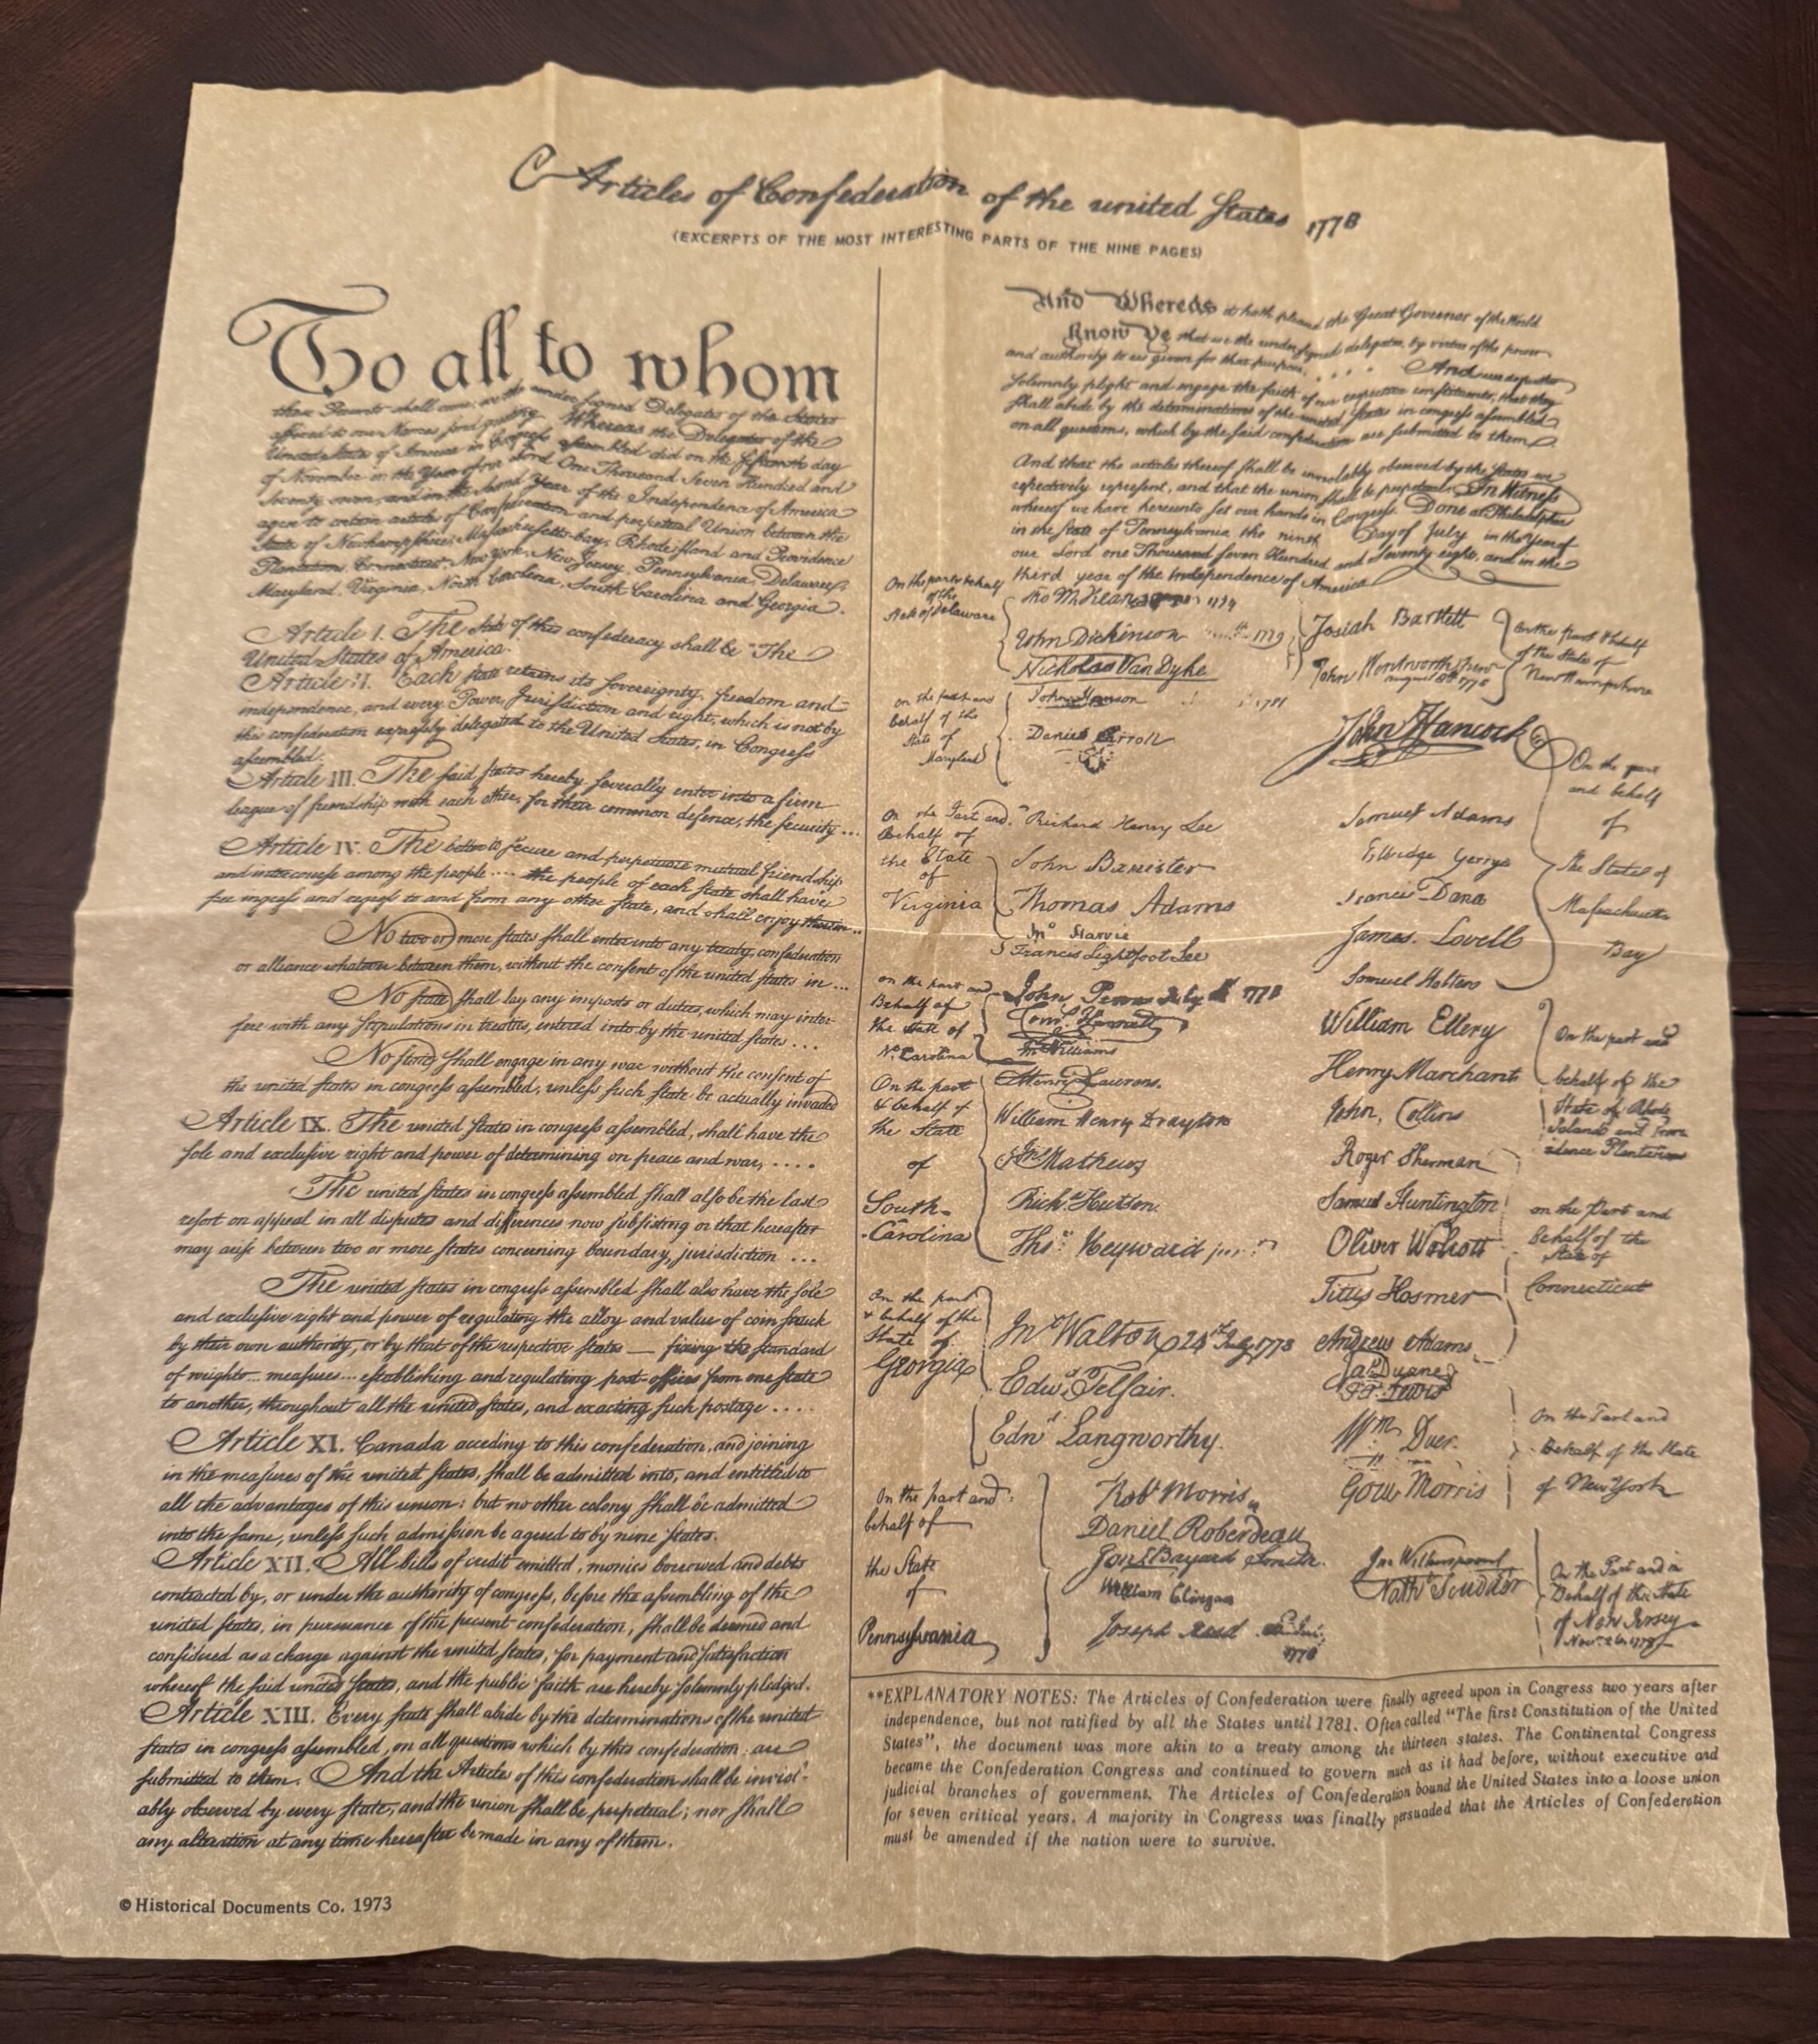 Articles of Confederation of the united States 1778
(EXCERPTS OF THE MOST INTERESTING PARTS OF THE NINE PAGES)
To all to whom
these Presents shall come, we the under signed Delegates of the States
affixed to our Names send greeting. Whereas the Delegates of the
United States of America in Congress assembled did on the fifteenth day
of November in the Year of our Lord One Thousand Seven Hundred and
Seventy seven, and in the Second Year of the Independence of America
agree to certain articles of Confederation and perpetual Union between the
States of Newhampshire, Massachusetts-bay, Rhodeisland and Providence
Plantations, Connecticut, New York, New Jersey, Pennsylvania, Delaware,
Maryland, Virginia, North Carolina, South Carolina and Georgia.
Article I. The stile of this confederacy shall be "The
United States of America.
Article II. Each state retains its sovereignty, freedom and
independence, and every Power, Jurisdiction and right, which is not by
this confederation expressly delegated to the United States, in Congress
assembled.
Article III. The said states hereby severally enter into a firm
league of friendship with each other, for their common defence, the security ...
Article IV. The better to secure and perpetuate mutual friendship
and intercourse among the people .... the people of each state shall have
free ingress and regress to and from any other state, and shall enjoy therein ..
No two or more states shall enter into any treaty, confederation
or alliance whatever between them, without the consent of the united states in ...
No state shall lay any imposts or duties, which may inter-
fere with any stipulations in treaties, entered into by the united states ...
No state shall engage in any war without the consent of
the united states in congress assembled, unless such state be actually invaded
Article IX. The united states in congress assembled, shall have the
sole and exclusive right and power of determining on peace and war, ....
The united states in congress assembled shall also be the last
resort on appeal in all disputes and differences now subsisting or that hereafter
may arise between two or more states concerning boundary, jurisdiction ...
The united states in congress assembled shall also have the sole
and exclusive right and power of regulating the alloy and value of coin struck
by their own authority, or by that of the respective states — fixing the standard
of weights... measures... establishing and regulating post-offices from one state
to another, throughout all the united states, and exacting such postage ....
Article XI. Canada acceding to this confederation, and joining
in the measures of the united states, shall be admitted into, and entitled to
all the advantages of this union: but no other colony shall be admitted
into the same, unless such admission be agreed to by nine states.
Article XII. All bills of credit emitted, monies borrowed and debts
contracted by, or under the authority of congress, before the assembling of the
united states, in pursuance of the present confederation, shall be deemed and
considered as a charge against the united states, for payment and satisfaction
whereof the said united states, and the public faith are hereby solemnly pledged.
Article XIII. Every state shall abide by the determinations of the united
states in congress assembled, on all questions which by this confederation are
submitted to them. And the Articles of this confederation shall be inviol-
ably observed by every state, and the union shall be perpetual; nor shall
any alteration at any time hereafter be made in any of them.
© Historical Documents Co. 1973
And Whereas it hath pleased the Great Governor of the World
Know Ye that we the undersigned delegates, by virtue of the power
and authority to us given for that purpose, .... And we do further
solemnly plight and engage the faith of our respective constituents, that they
shall abide by the determinations of the united states in congress assembled
on all questions, which by the said confederation are submitted to them
And that the articles thereof shall be inviolably observed by the states we
respectively represent, and that the union shall be perpetual. In Witness
whereof we have hereunto set our hands in Congress. Done at Philadelphia
in the state of Pennsylvania the ninth Day of July in the Year of
our Lord one Thousand seven Hundred and Seventy eight, and in the
third year of the independence of America
On the part & behalf
of the
State of Delaware
Tho M:Kean
John Dickinson
Nicholas Van Dyke
on the part and
behalf of the
State of
Maryland
John Hanson 1781
Daniel Carroll
On the Part and
Behalf of
the State
of
Virginia
Richard Henry Lee
John Banister
Thomas Adams
Jno Harvie
Francis Lightfoot Lee
on the part and
Behalf of
the State of
No. Carolina
John Penn July 1778
Corns. Harnett
Jno Williams
On the part
& behalf of
the State
of
South-
Carolina
Henry Laurens.
William Henry Drayton
Jno Mathews
Richd. Hutson.
Thos. Heyward junr.
On the part
& behalf of the
State of
Georgia
Jno Walton 24th July 1778
Edwd. Telfair.
Edwd Langworthy.
On the part and
behalf of
the State
of
Pennsylvania
Robt Morris
Daniel Roberdeau
Jona Bayard Smith.
William Clingan
Joseph Reed
1778
Josiah Bartlett
John Wentworth Junr
august 8th 1778
On the part & behalf
of the State of
New Hampshire
John Hancock
Samuel Adams
Elbridge Gerry
Francis Dana
James. Lovell
Samuel Holten
On the part
and behalf
of
the State of
Massachusetts
Bay
William Ellery
Henry Marchant
John, Collins
On the part and
behalf of the
State of Rhode
Island and Prov-
idence Plantations
Roger Sherman
Samuel Huntington
Oliver Wolcott
Titus Hosmer
Andrew Adams
on the Part and
behalf of the
State of
Connecticut
Jas. Duane
Fr. Lewis
Wm Duer.
Gouv Morris
On the Part and
Behalf of the State
of New York
Jno Witherspoon
Nathl Scudder
On the Part and in
Behalf of the State
of New Jersey
Novr. 26. 1778
**EXPLANATORY NOTES: The Articles of Confederation were finally agreed upon in Congress two years after
independence, but not ratified by all the States until 1781. Often called "The first Constitution of the United
States", the document was more akin to a treaty among the thirteen states. The Continental Congress
became the Confederation Congress and continued to govern much as it had before, without executive and
judicial branches of government. The Articles of Confederation bound the United States into a loose union
for seven critical years. A majority in Congress was finally persuaded that the Articles of Confederation
must be amended if the nation were to survive.